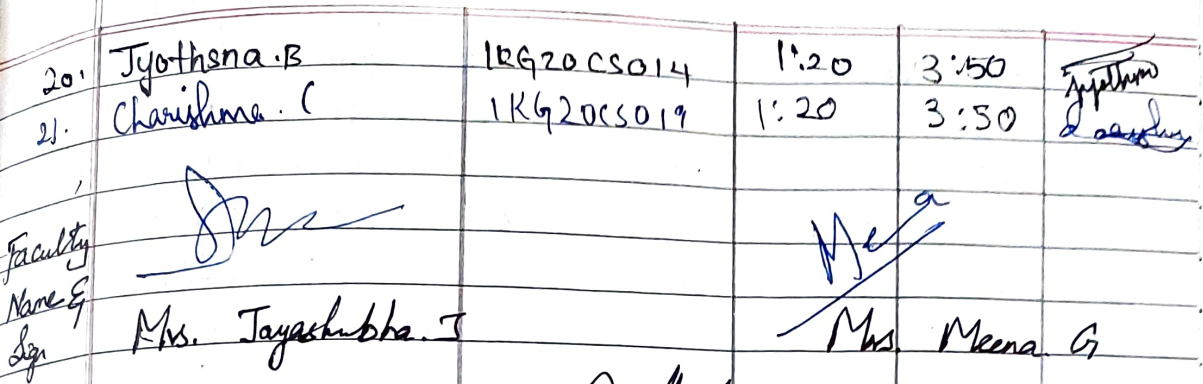 20. Jyothsna.B 1KG20CS014 1:20 3:50
21. Charishma. C 1KG20CS019 1:20 3:50
Faculty
Name &
Sign
Mrs. Jayashubha.J Mrs. Meena G